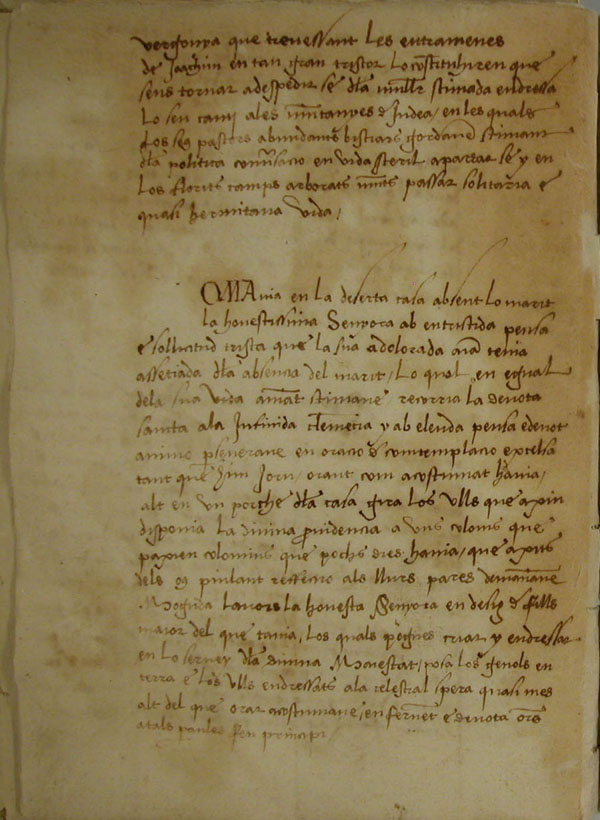 vergonya que trevessant les entramenes
de Joachim en tan gran tristor lo constituhiren que
sens tornar a despedir se dla muller stimada endressa
Lo seu cami ales muntanyes d Judea, en les quals
Los seus pastors abundants bistiars gordavan stimant
dla politica conversacio en vida steril apartar se y en
Los florits camps arborats munts passar solitaria e
quasi hermitana vida,
QMAnia en la deserta casa absent lo marit
la honestissima Senyora ab entristida pensa
e sollicitud trista que la sua adolorada aia tenia
assetiada dla absencia del marit, Lo qual en egual
dela sua vida amat stimane, recorria la devota
sancta ala Infinida Clemecia y ab elevada pensa e devot
animo pseverant en oracio e comtemplacio excelsa
tant que hun Jorn, orant com acostumat havia,
alt en un porche dla casa gira los ulls que axin
disponia la divina pvidencia a uns coloms que
paxien colomins que pochs dies havia, que axits
dels ous piulant rectecio als llurs pares demanave
Moguda lavors la honesta Senyora en desig d fills
maior del que tenia, los quals pogues criar y endressar
en lo servey dla divina Maiestat, posa los genols en
terra e los ulls endressats ala celestial spera quasi mes
alt del que orar acostumane, en fervent e devota oro
atals paules feu principi,